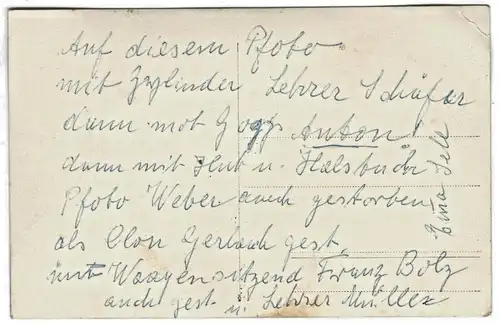 Auf diesem Pfoto
mit Zylinder Lehrer Schäfer
dann mot Gogg Anton
dann mit Hut u. Halsbuch
Pfoto Weber auch gestorben
als Clon Gerlach gest.
mit Waagen sitzend Franz Bolz
auch gest u. Lehrer Müller